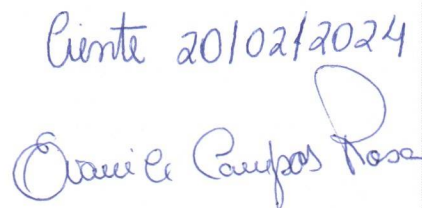 Ciente 20/02/2024
Evanice Campos Rosa